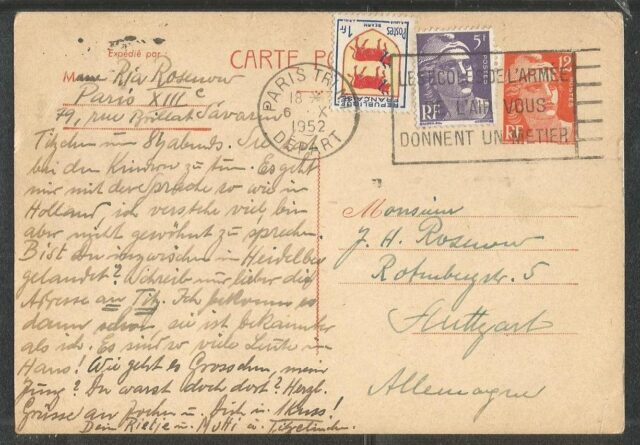 CARTE PO
Expédié par
Mme Ria Rosenow
Paris XIIIe
79, rue Brillat Savarin
Titzchen um 8h abends. Sie
bei den Kindern zu tun. Es geht
mir mit der Sprache so wie in
Holland, ich verstehe viel, bin
aber nicht gewöhnt zu sprechen.
Bist Du inzwischen in Heidelbe
gelandet? Schreib mir lieber die
Adresse an Titz. Ich bekomme es
dann schon, sie ist bekannter
als ich. Es sind so viele Leute im
Haus! Wie geht es Grosschen, mein
Jung? Du warst doch dort? Herzl.
Grüsse an Jochen u. Dich u. 1 Kuss!
Dein Rietje u. Mutti u. Titzelinchen.
PARIS TRI
18
6 X
1952
DEPART
Postes
1F
BEARN
REPUBLIQUE
FRANÇAISE
5F
POSTES
RF
12
RF
L'ECOLE DE L'ARMEE
L'AIR VOUS
DONNENT UN METIER
Monsieur
J. H. Rosenow
Rotenbergstr. 5
Stuttgart
Allemagne